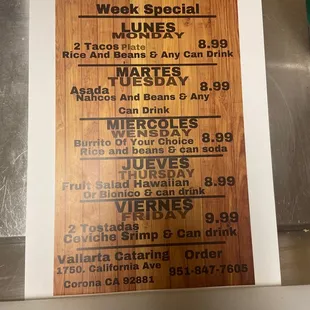 Week Special
LUNES
MONDAY
2 Tacos Plate 8.99
Rice And Beans & Any Can Drink
MARTES
TUESDAY
Asada 8.99
Nahcos And Beans & Any
Can Drink
MIERCOLES
WENSDAY
Burrito Of Your Choice 8.99
Rice and beans & can soda
JUEVES
THURSDAY
Fruit Salad Hawaiian 8.99
Or Bionico & can drink
VIERNES
FRIDAY
2 Tostadas 9.99
Ceviche Srimp & Can drink
Vallarta Cataring Order
1750. California Ave 951-847-7605
Corona CA 92881